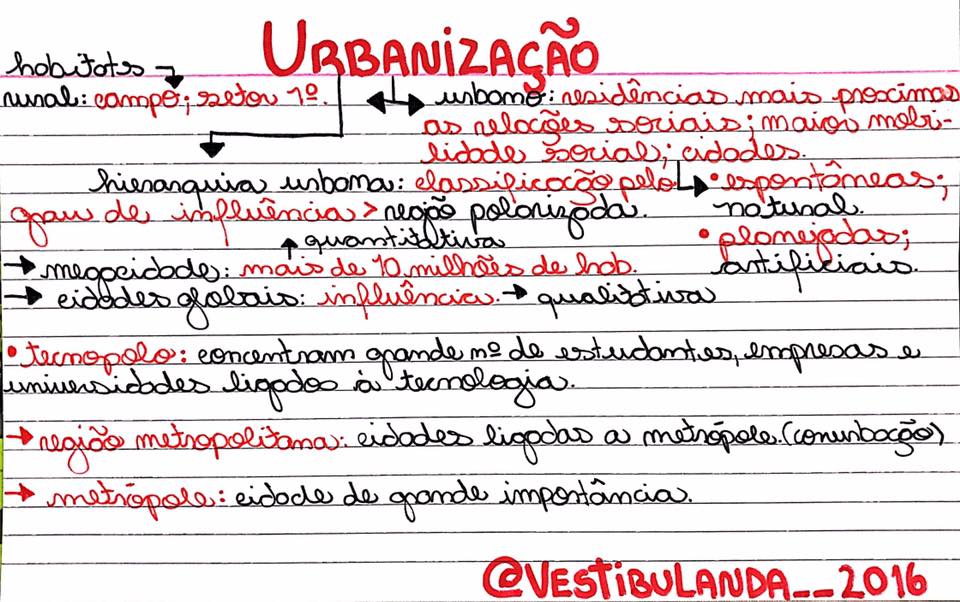 URBANIZAÇÃO
habitates
rural: campo; setor 1º.
urbano: residências mais proximas
as relações sociais; maior mobi-
lidade social; cidades.
hierarquia urbana: classificação pelo
grau de influência > região polarizada.
• espontâneas;
natural.
• planejadas;
artificiais.
quantitativa
→ megacidade: mais de 10 milhões de hab.
→ cidades globais: influência. → qualitativa
• tecnopolo: concentram grande nº de estudantes, empresas e
universidades ligados à tecnologia.
→ região metropolitana: cidades ligadas a metrópole. (conurbação)
→ metrópole: cidade de grande importância.
@VESTIBULANDA__2016